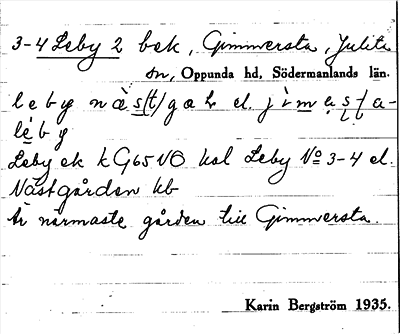 3-4 Leby 2 bsk, Gimmersta, Julita
sn, Oppunda hd, Södermanlands län.
léby
Leby ek kG65 NO kal Leby No 3-4 el.
Nästgården kb
Är närmaste gården till Gimmersta.
Karin Bergström 1935.